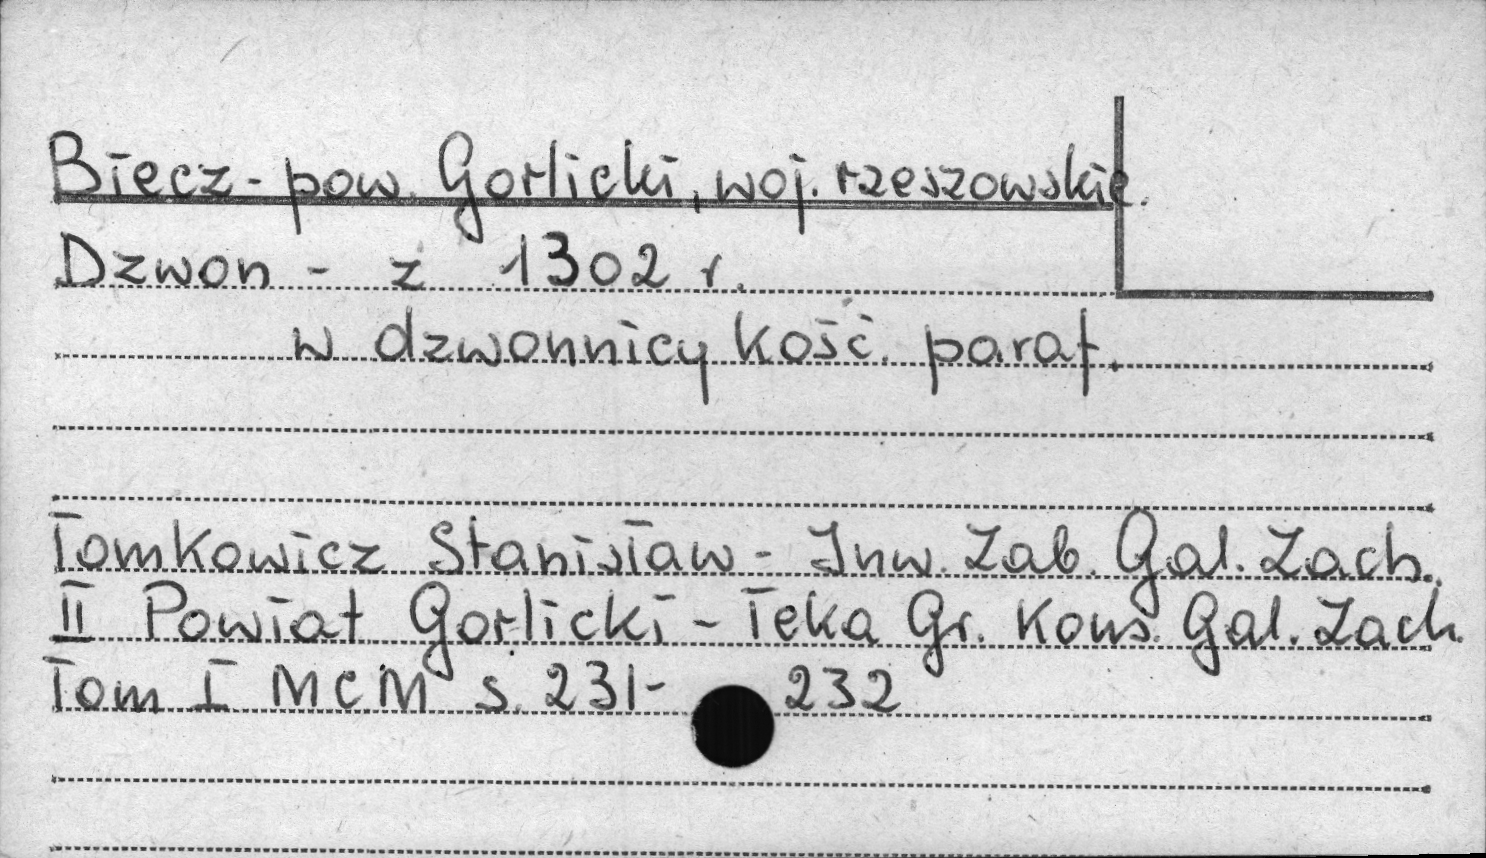 Biecz - pow. Gorlicki, woj. rzeszowskie.
Dzwon - z 1302 r.
w dzwonnicy kość. paraf.
Tomkowicz Stanisław - Inw. Zab. Gal. Zach.
II Powiat Gorlicki - Teka Gr. Kons. Gal. Zach.
Tom I MCM s. 231- 232